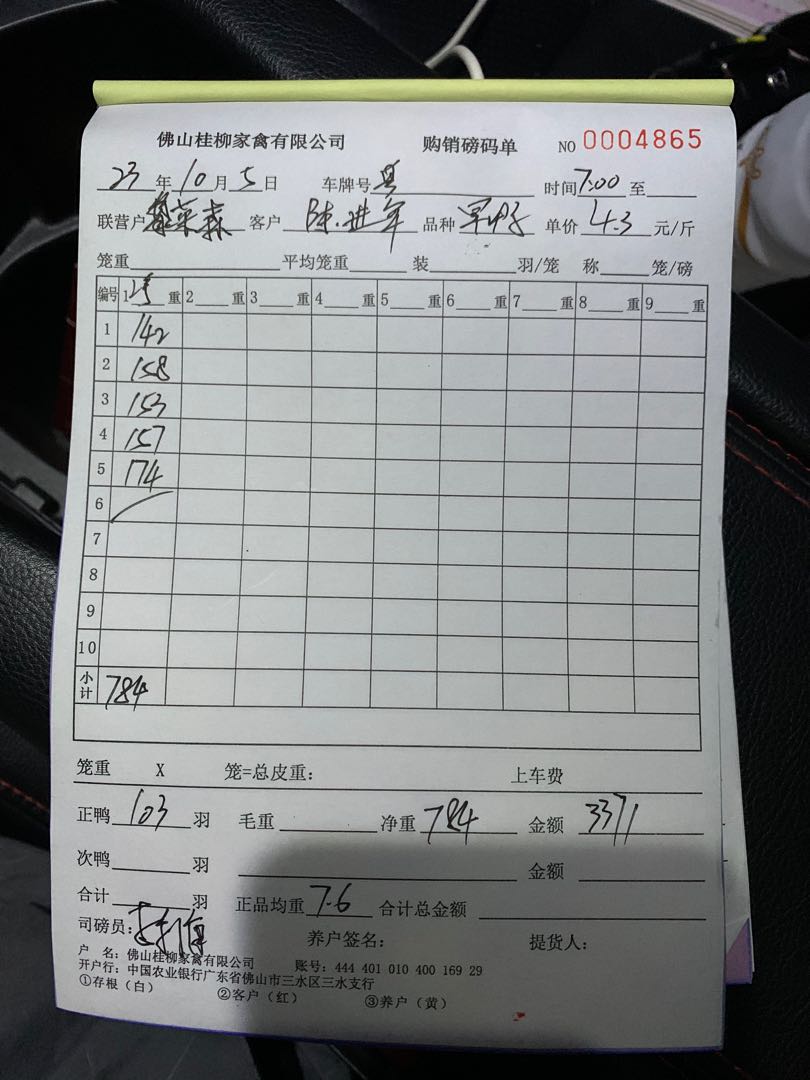 佛山桂柳家禽有限公司 购销磅码单 NO 0004865
23年10月5日 车牌号 时间7:00至
联营户 客户 陈进年 品种 单价4.3元/斤
笼重 平均笼重 装 羽/笼 称 笼/磅
编号 1 重 2 重 3 重 4 重 5 重 6 重 7 重 8 重 9 重
1 142
2 158
3 153
4 157
5 174
6
7
8
9
10
小计 784
笼重 X 笼=总皮重: 上车费
正鸭103羽 毛重 净重784 金额3371
次鸭 羽 金额
合计 羽 正品均重7.6 合计总金额
司磅员: 养户签名: 提货人:
户 名: 佛山桂柳家禽有限公司 账号: 444 401 010 400 169 29
开户行: 中国农业银行广东省佛山市三水区三水支行
①存根(白) ②客户(红) ③养户(黄)